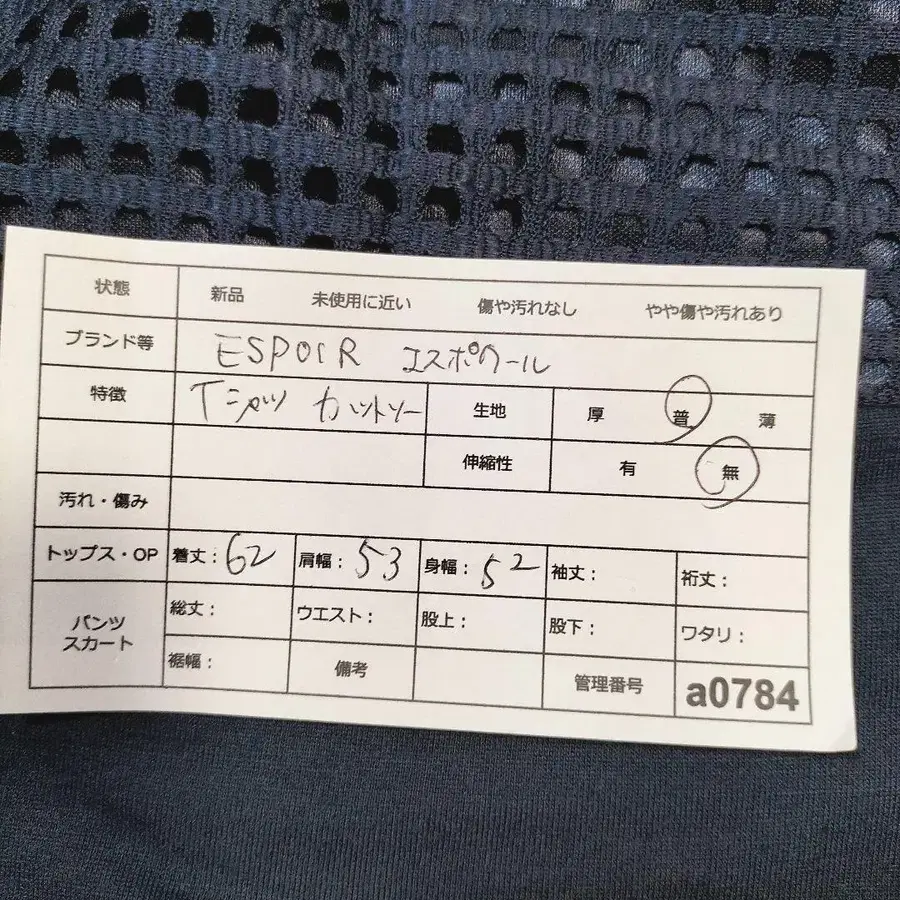 状態 新品 未使用に近い 傷や汚れなし やや傷や汚れあり
ブランド等 ESPOIR エスポワール
特徴 Tシャツ カットソー 生地 厚 普 薄
伸縮性 有 無
汚れ・傷み
トップス・OP 着丈：62 肩幅：53 身幅：52 袖丈： 裄丈：
パンツ スカート 総丈： ウエスト： 股上： 股下： ワタリ：
裾幅： 備考 管理番号 a0784